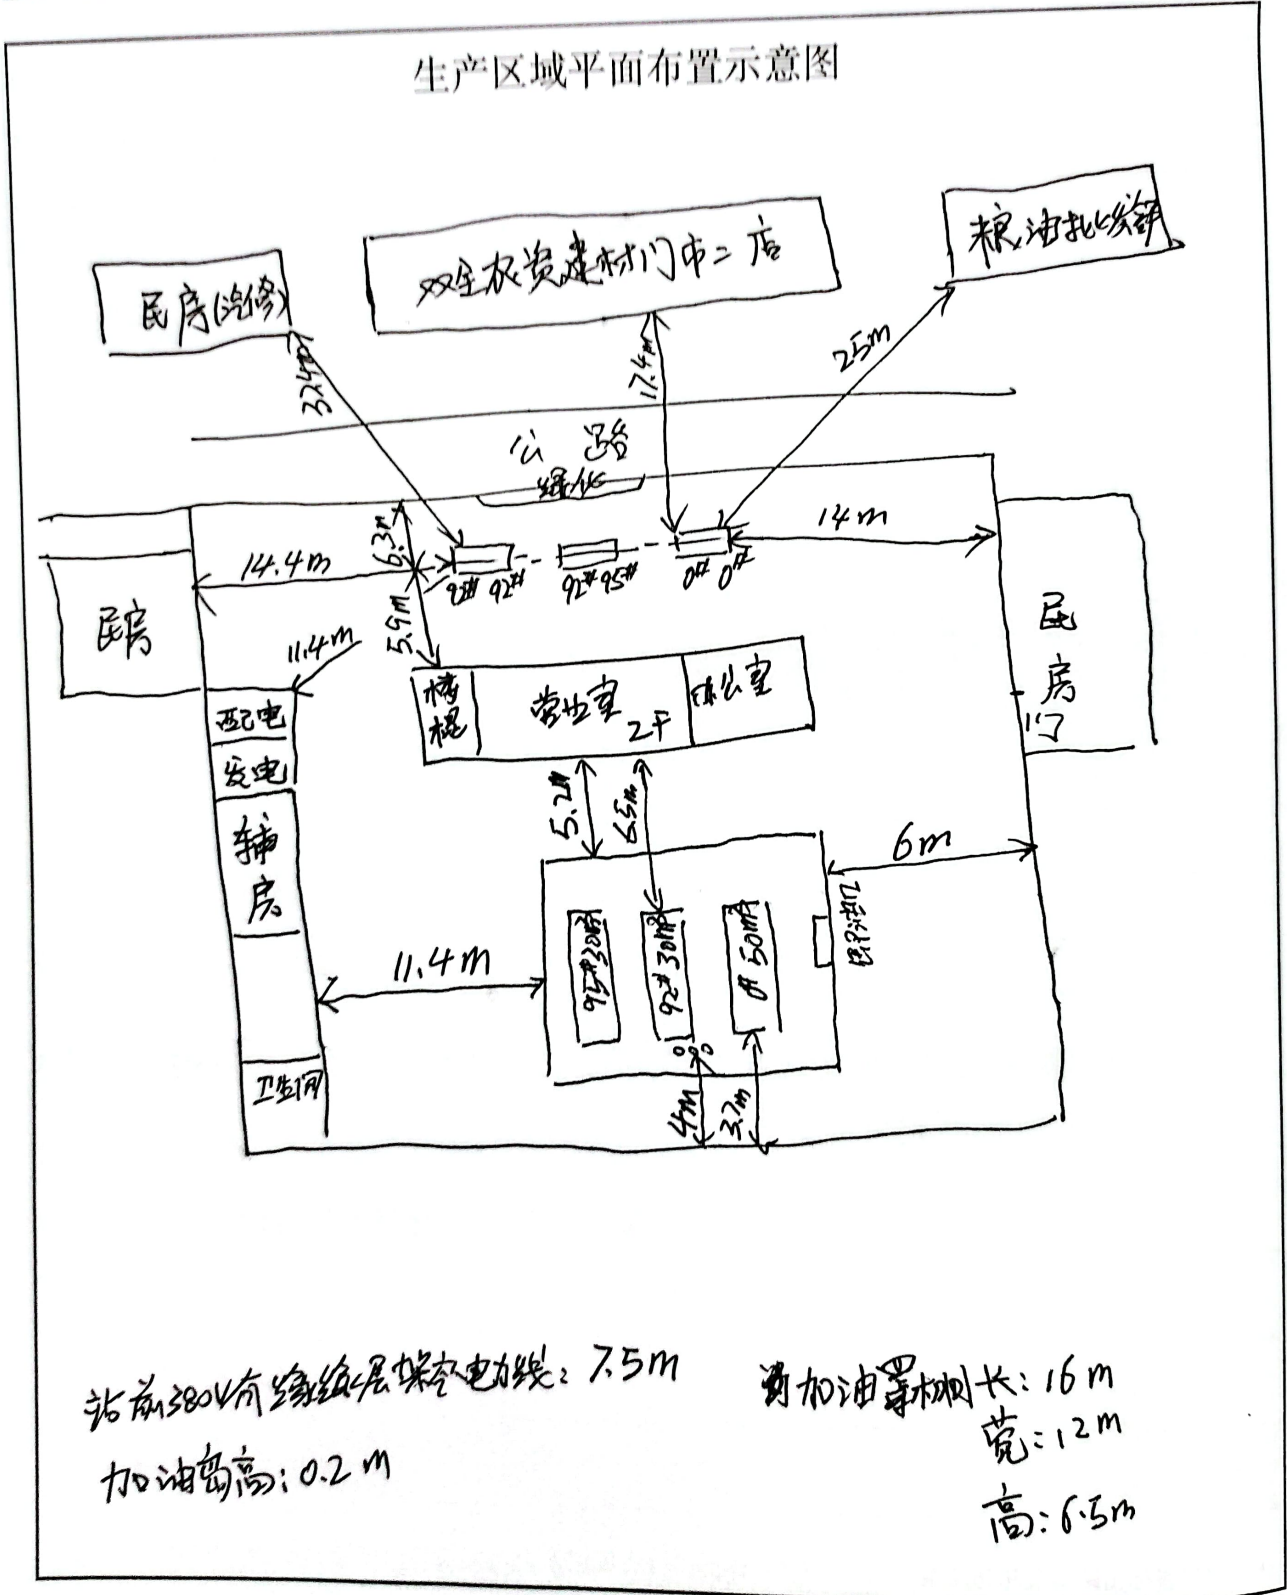 生产区域平面布置示意图
民房(汽修)
双全农资建材门市二店
粮油批发部
32.4m
17.4m
25m
公路
绿化
14.4m
6.3m
92# 92#
92# 95#
0# 0#
14m
民房
5.9m
11.4m
配电
发电
辅房
卫生间
营业室
2F
办公室
民房
5.2m
6.5m
6m
11.4m
95# 30m³
92# 30m³
0# 50m³
卸油口
4m
3.7m
站前380V有绝缘层架空电力线: 7.5m
加油岛高: 0.2m
加油罩棚 长: 16m
宽: 12m
高: 6.5m